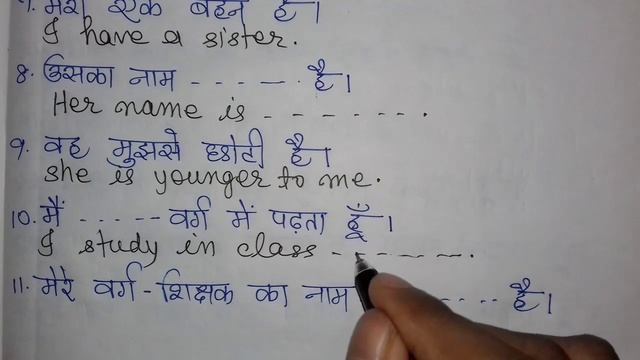 7. मेरी एक बहन है।
I have a sister.
8. उसका नाम - - - - - - है।
Her name is - - - - - - - .
9. वह मुझसे छोटी है।
She is younger to me.
10. मैं - - - - - वर्ग में पढ़ता हूँ।
I study in class - - - - - - .
11. मेरे वर्ग-शिक्षक का नाम - - - - है।